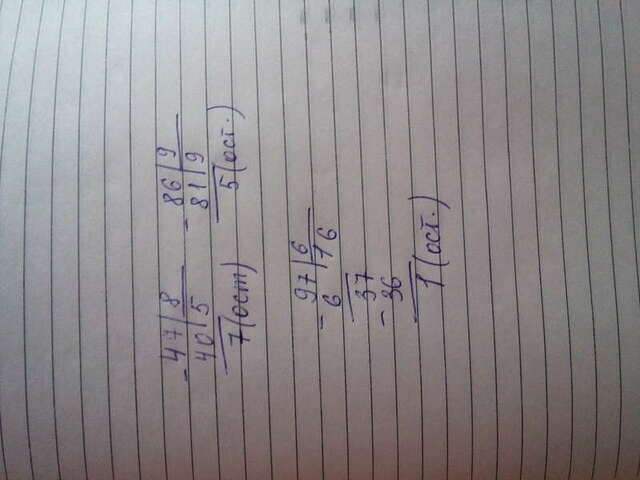 - 47 | 8    - 86 | 9
40 | 5    81 | 9
7 (ост)    5 (ост.)
- 97 | 6
6 | 16
37
- 36
1 (ост.)